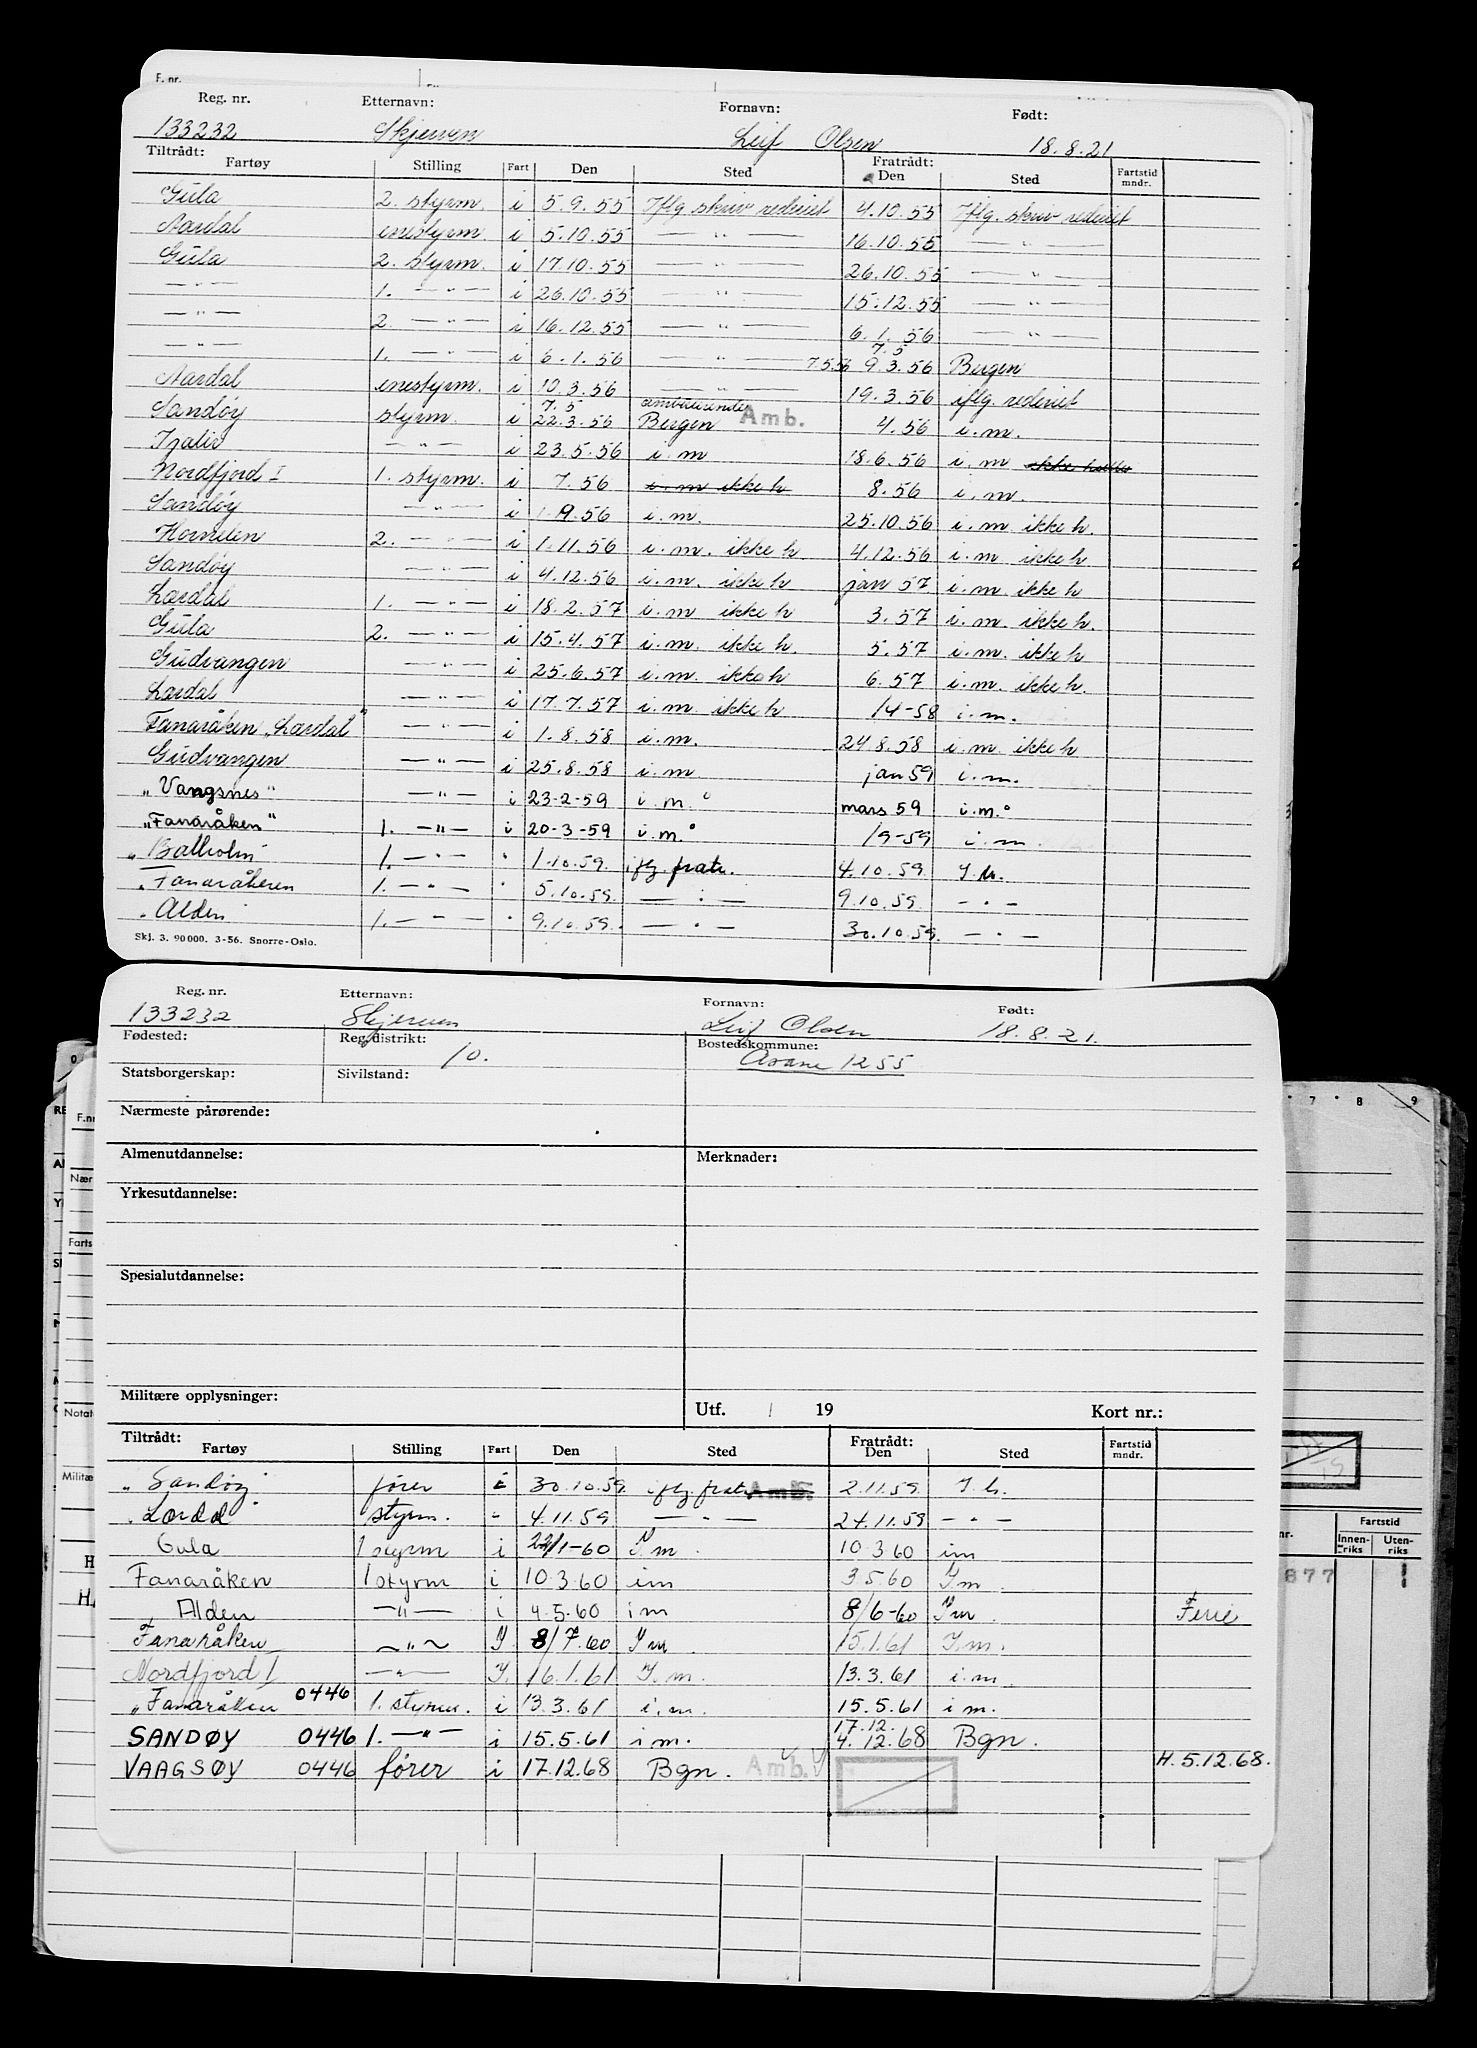 F. nr.
Reg. nr. Etternavn: Fornavn: Født:
133232 Skjerven Leif Olsen 18.8.21
Tiltrådt: Fratrådt:
Fartøy Stilling Fart Den Sted Den Sted Fartstid mndr.
Gula 2. styrm. i 5.9.55 Iflg skriv rederiet 4.10.55 Iflg. skriv rederiet
Aardal enestyrm. i 5.10.55 — " — 16.10.55 — " —
Gula 2. styrm. i 17.10.55 — " — 26.10.55 — " —
— " — 1. — " — i 26.10.55 — " — 15.12.55 — " —
— " — 2. — " — i 16.12.55 — " — 6.1.56 — " —
— " — 1. — " — i 6.1.56 — " — 7.5.56 7.5 9.3.56 Bergen
Aardal enestyrm. i 10.3.56 — " — 19.3.56 iflg. rederiet
Sandøy styrm. i 7.5 22.3.56 ambulerende Bergen Amb. 4.56 i.m.
— " — i 23.5.56 i.m 18.6.56 i.m
Nordfjord I 1. styrm. i 7.56 i.m ikke h 8.56 i.m.
Sandøy — " — i 1.9.56 i.m. 25.10.56 i.m ikke h.
Hornelen 2. — " — i 1.11.56 i.m. ikke h 4.12.56 i.m ikke h
Sandøy — " — i 4.12.56 i.m. ikke h jan 57 i.m ikke h
Lærdal 1. — " — i 18.2.57 i.m ikke h 3.57 i.m. ikke h.
Gula 2. — " — i 15.4.57 i.m. ikke h. 5.57 i.m. ikke h
Gudvangen — " — i 25.6.57 i.m. ikke h 6.57 i.m. ikke h.
Lærdal — " — i 17.7.57 i.m ikke h 14-58 i.m.
Fanaråken "Lærdal" — " — i 1.8.58 i.m. 24.8.58 i.m. ikke h
Gudvangen — " — i 25.8.58 i.m. jan 59 i.m.
"Vangsnes" — " — i 23-2-59 i.m. mars 59 i.m.
"Fanaråken" 1. — " — i 20-3-59 i.m. 19-59 i.m.
"Balholm" 1. — " — " 1.10.59. iflg. fratr. 4.10.59. I h.
"Fanaråken 1. — " — " 5.10.59. — " — 9.10.59. — " —
"Alden" 1. — " — " 9.10.59. — " — 30.10.59. — " —
Skj. 3. 90000. 3-56. Snorre-Oslo.
Reg. nr. Etternavn: Fornavn: Født:
133232 Skjerven Leif Olsen 18.8.21.
Fødested: Reg. distrikt: 10. Bostedskommune: Åsane 1255
Statsborgerskap: Sivilstand:
Nærmeste pårørende:
Almenutdannelse: Merknader:
Yrkesutdannelse:
Spesialutdannelse:
Militære opplysninger: Utf. / 19 Kort nr.:
Tiltrådt: Fratrådt:
Fartøy Stilling Fart Den Sted Den Sted Fartstid mndr.
"Sandøy" fører i 30.10.59. iflg. fratr. Amb. 2.11.59. I h.
"Lærdal" styrm. " 4.11.59. — " — 24.11.59 — " —
Gula 1 styrm i 22/1-60 I m. 10.3.60 im
Fanaråken 1 styrm i 10.3.60 im 3.5.60 I m
Alden — " — i 4.5.60 im 8/6-60 I m Ferie
Fanaråken — " — I. 8/7.60 I m 15.1.61 I. m.
Nordfjord I — " — I. 16.1.61 I. m. 13.3.61 i.m
"Fanaråken 0446 1. styrm. i 13.3.61 i.m. 15.5.61 i m.
SANDØY 0446 1. — " — i 15.5.61 i m. 17.12. 4.12.68 Bgn.
VAAGSØY 0446 fører i 17.12.68 Bgn. Amb. H. 5.12.68.
F.nr
Nær
Farts
Notat
Militæ
7 8 9
nr. Fartstid
Innenriks Utenriks
877